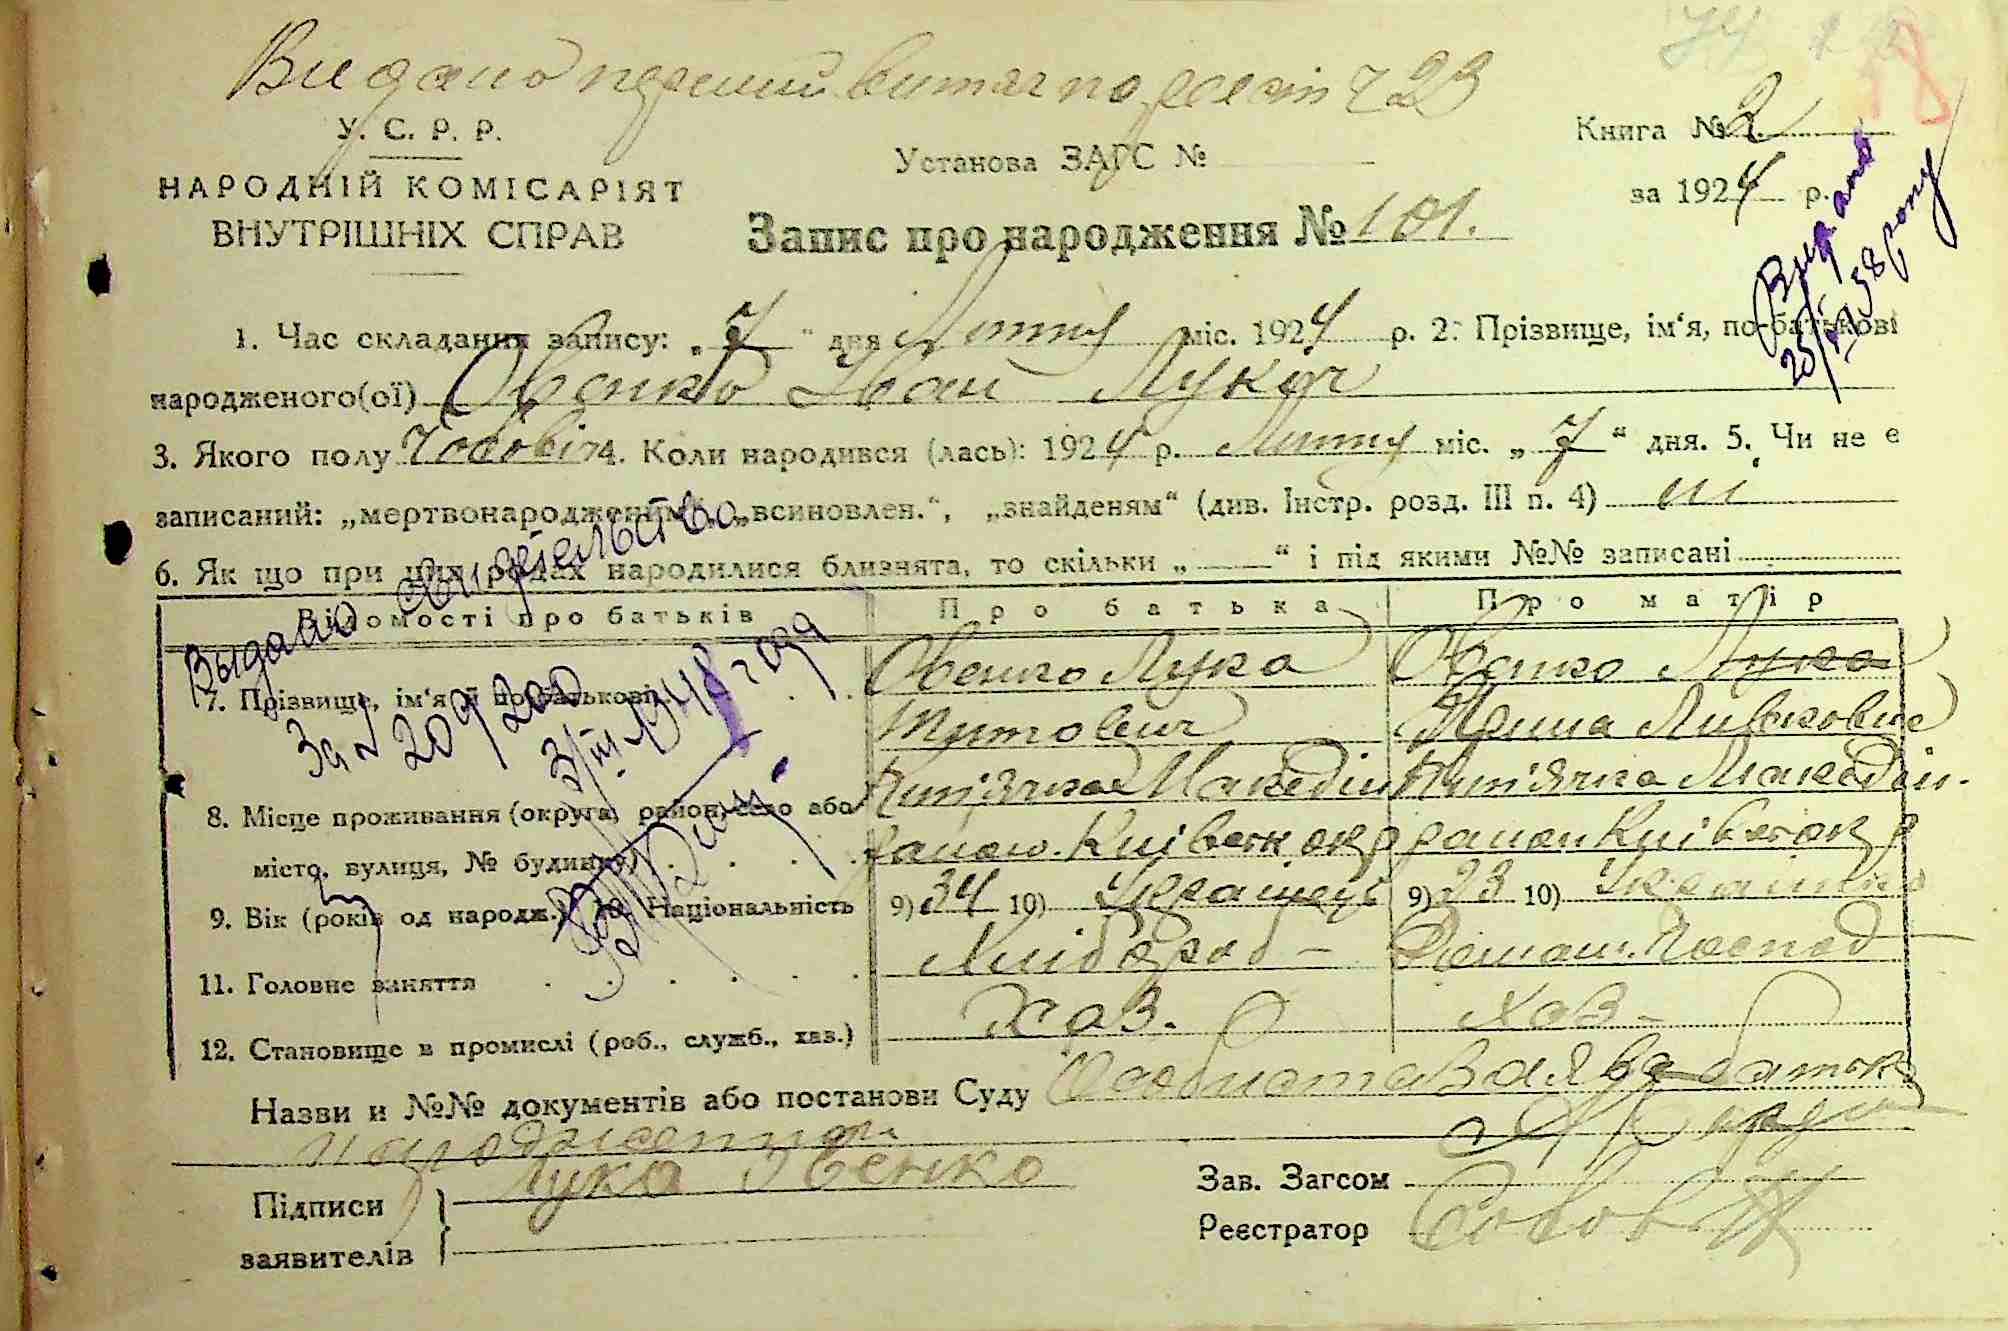 Видано перший витяг по реєст Ч 23
У. С. Р. Р.
НАРОДНІЙ КОМІСАРІЯТ
ВНУТРІШНІХ СПРАВ
Установа ЗАГС №
Книга № 2
за 1924 р.
Запис про народження № 101.
Видано
1. Час складання запису: „7" дня Лютня міс. 1924 р. 2. Прізвище, ім'я, по-батькові
народженого(ої) Овенко Іван Лукич
3. Якого полу Чоловіч 4. Коли народився (лась): 1924 р. Лютня міс. „7" дня. 5. Чи не є
записаний: „мертвонародженим", „всиновлен.", „знайденям" (див. Інстр. розд. III п. 4) ні
6. Як що при цих родах народилися близнята, то скільки „ " і під якими №№ записані
Відомості про батьків
Про батька
Про матір
Выдано свидетельство
За № 209200
3/III 1948 года
7. Прізвище, ім'я й по-батькові
Овенко Лука
Титович
Овенко Лука
Ярина Личковна
8. Місце проживання (округа, район, село або
місто, вулиця, № будинку)
район Київськ окр
район Київськ окр
9. Вік (років од народж.) 10. Національність
9) 34 10) Українець
9) 23 10) Українка
11. Головне заняття
Хлібороб
Домаш. Господ
12. Становище в промислі (роб., служб., хаз.)
Хаз.
Хаз
Назви и №№ документів або постанови Суду Особиста заява батька
народження
Підписи
заявителів
Лука Овенко
Зав. Загсом
Реєстратор